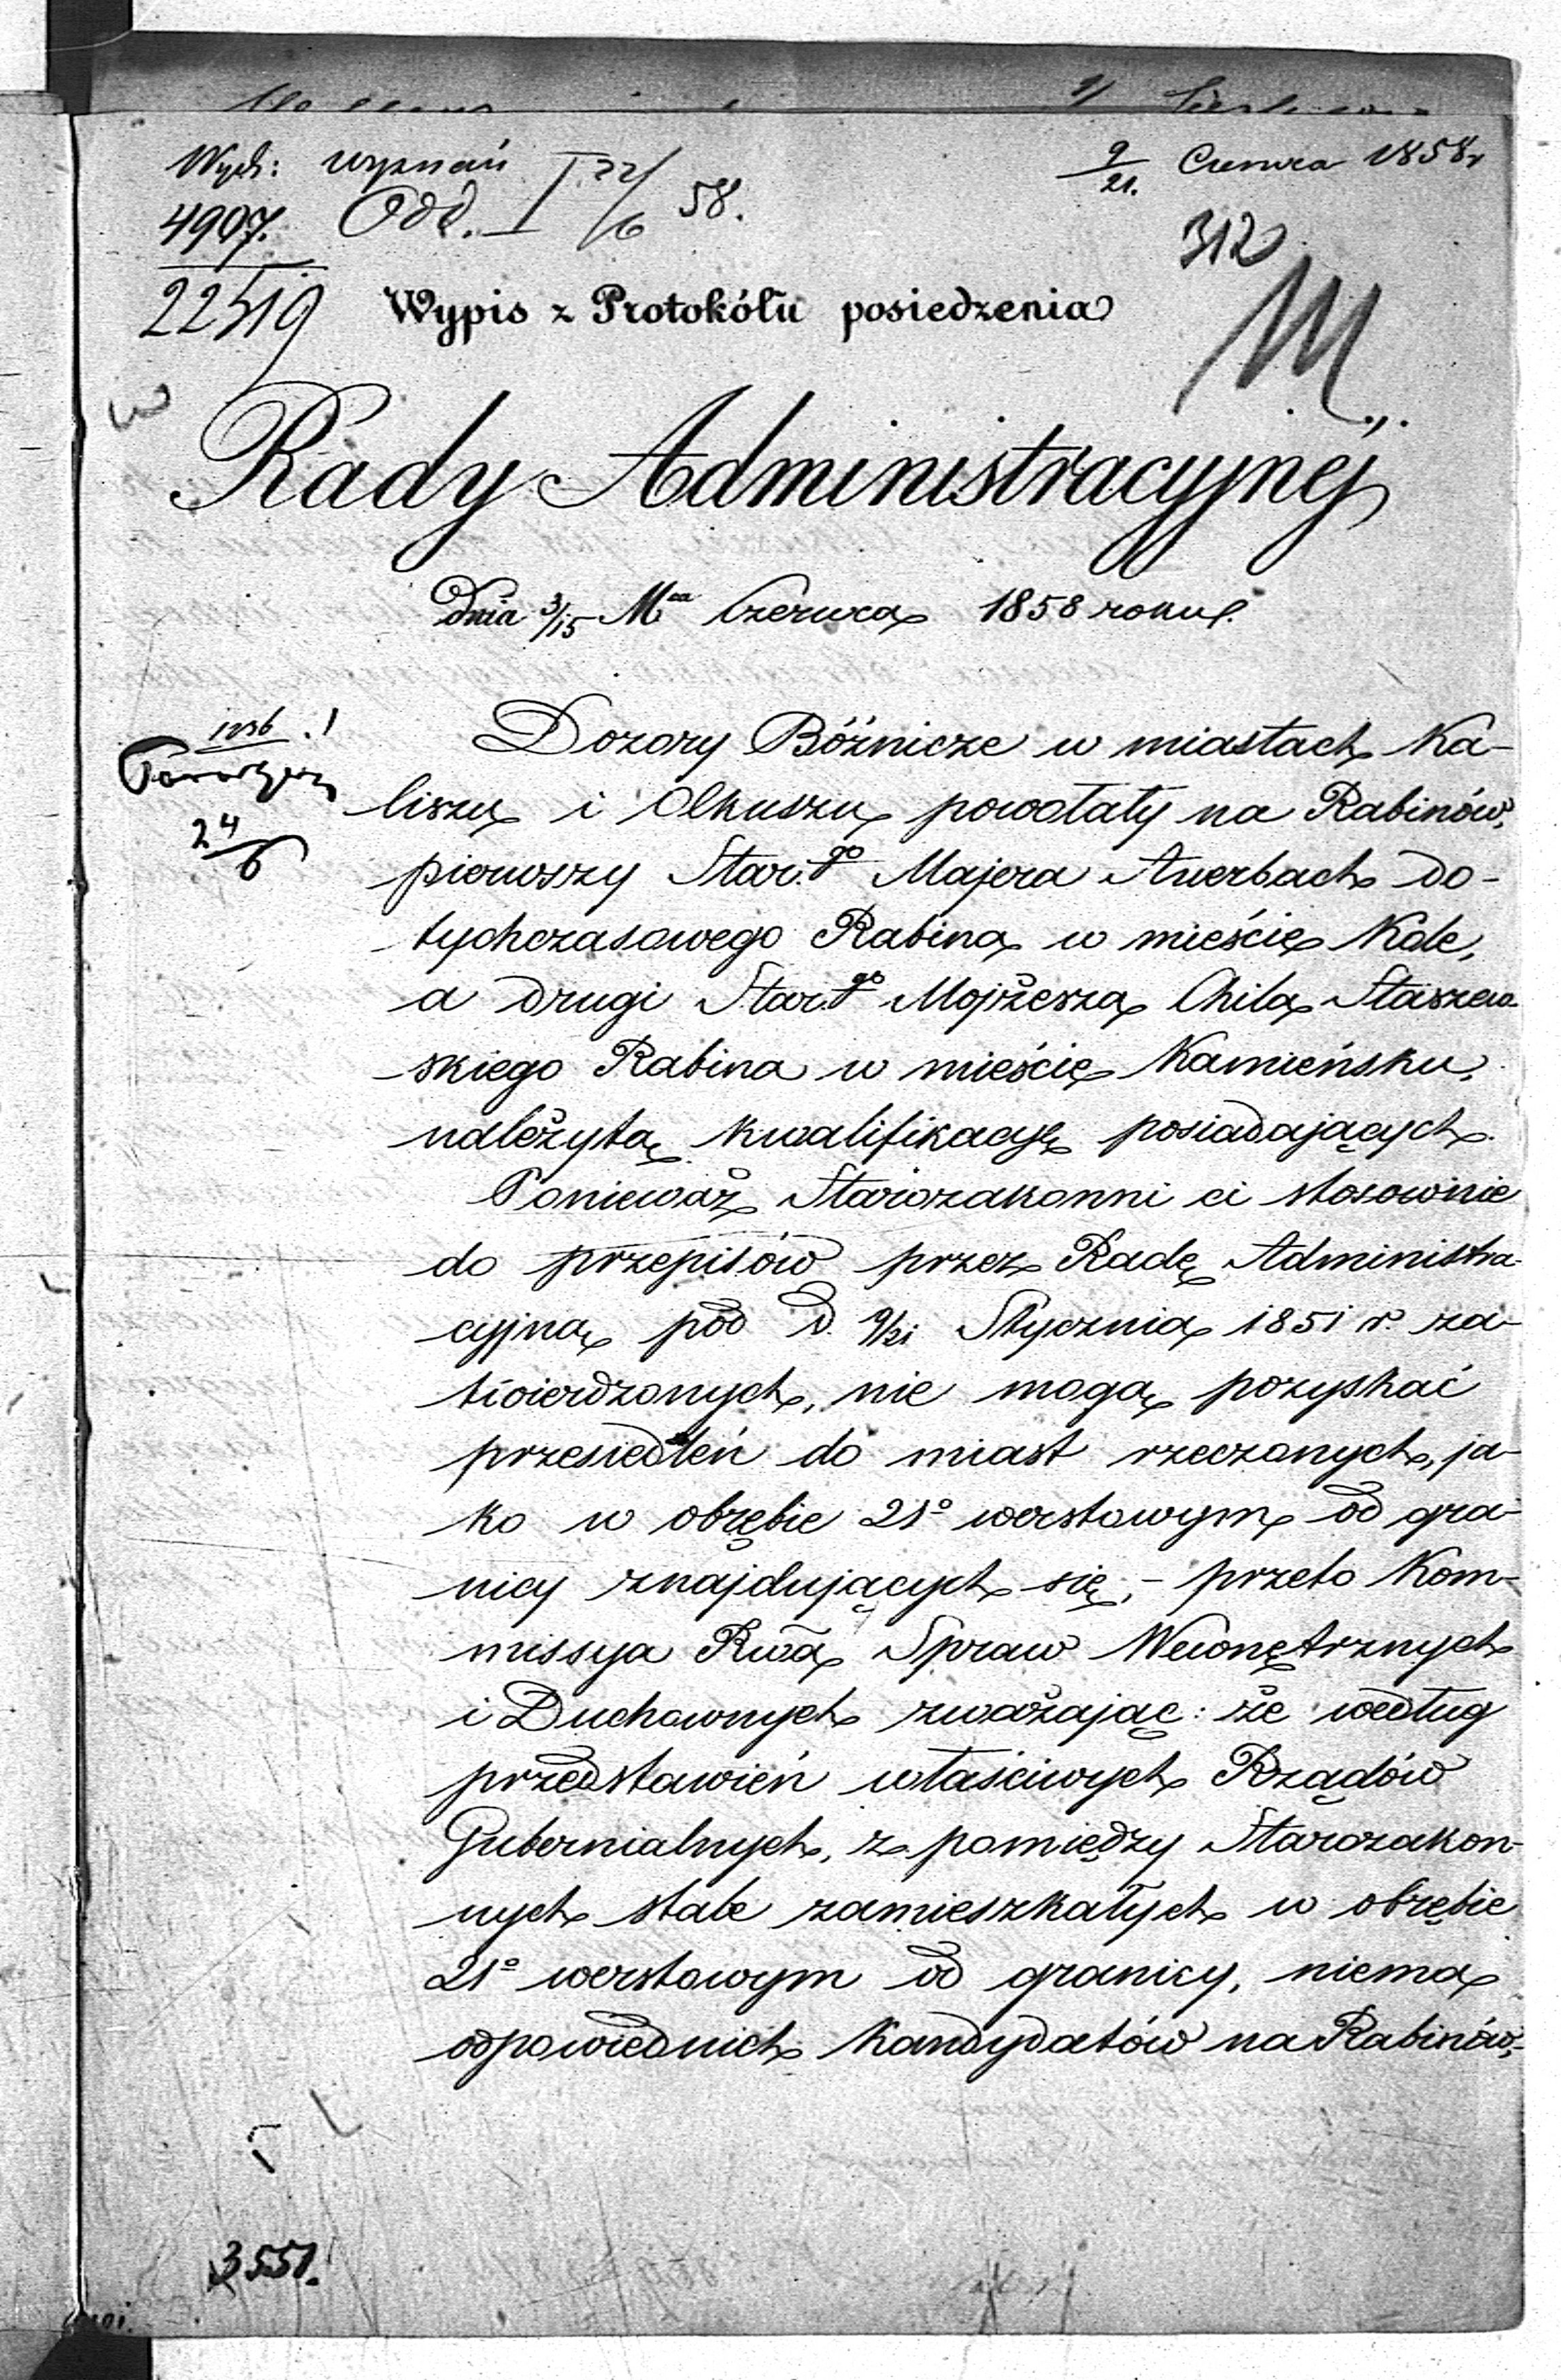 Wydz: wyznań
9/21. Czerwca 1858r
4907. Odd. I 22/6 58.
22519
312
Wypis z Protokółu posiedzenia
Rady Administracyjnéj
Dnia 3/15 Mca Czerwca 1858 roku.
1236
24/6
Dozory Bóżnicze w miastach Ka-
liszu i Olkuszu powołały na Rabinów,
pierwszy Star.go Majera Auerbach do-
tychczasowego Rabina w mieście Kole,
a drugi Star.go Mojżesza Chila Staszew
skiego Rabina w mieście Kamieńsku,
należytą kwalifikacyę posiadających.
Ponieważ Starozakonni ci stosownie
do przepisów przez Radę Administra-
cyjną pod d. 9/21 Stycznia 1851 r. za-
twierdzonych, nie mogą pozyskać
przesiedleń do miast rzeczonych, ja-
ko w obrębie 21o worstowym od gra-
nicy znajdujących się, - przeto Kom-
missya Rwa Spraw Wewnętrznych
i Duchownych zważając: że według
przedstawień właściwych Rządów
Gubernialnych, z pomiędzy Starozakon-
nych stale zamieszkałych w obrębie
21o worstowym od granicy, niema
odpowiednich Kandydatów na Rabinów,-
3551.